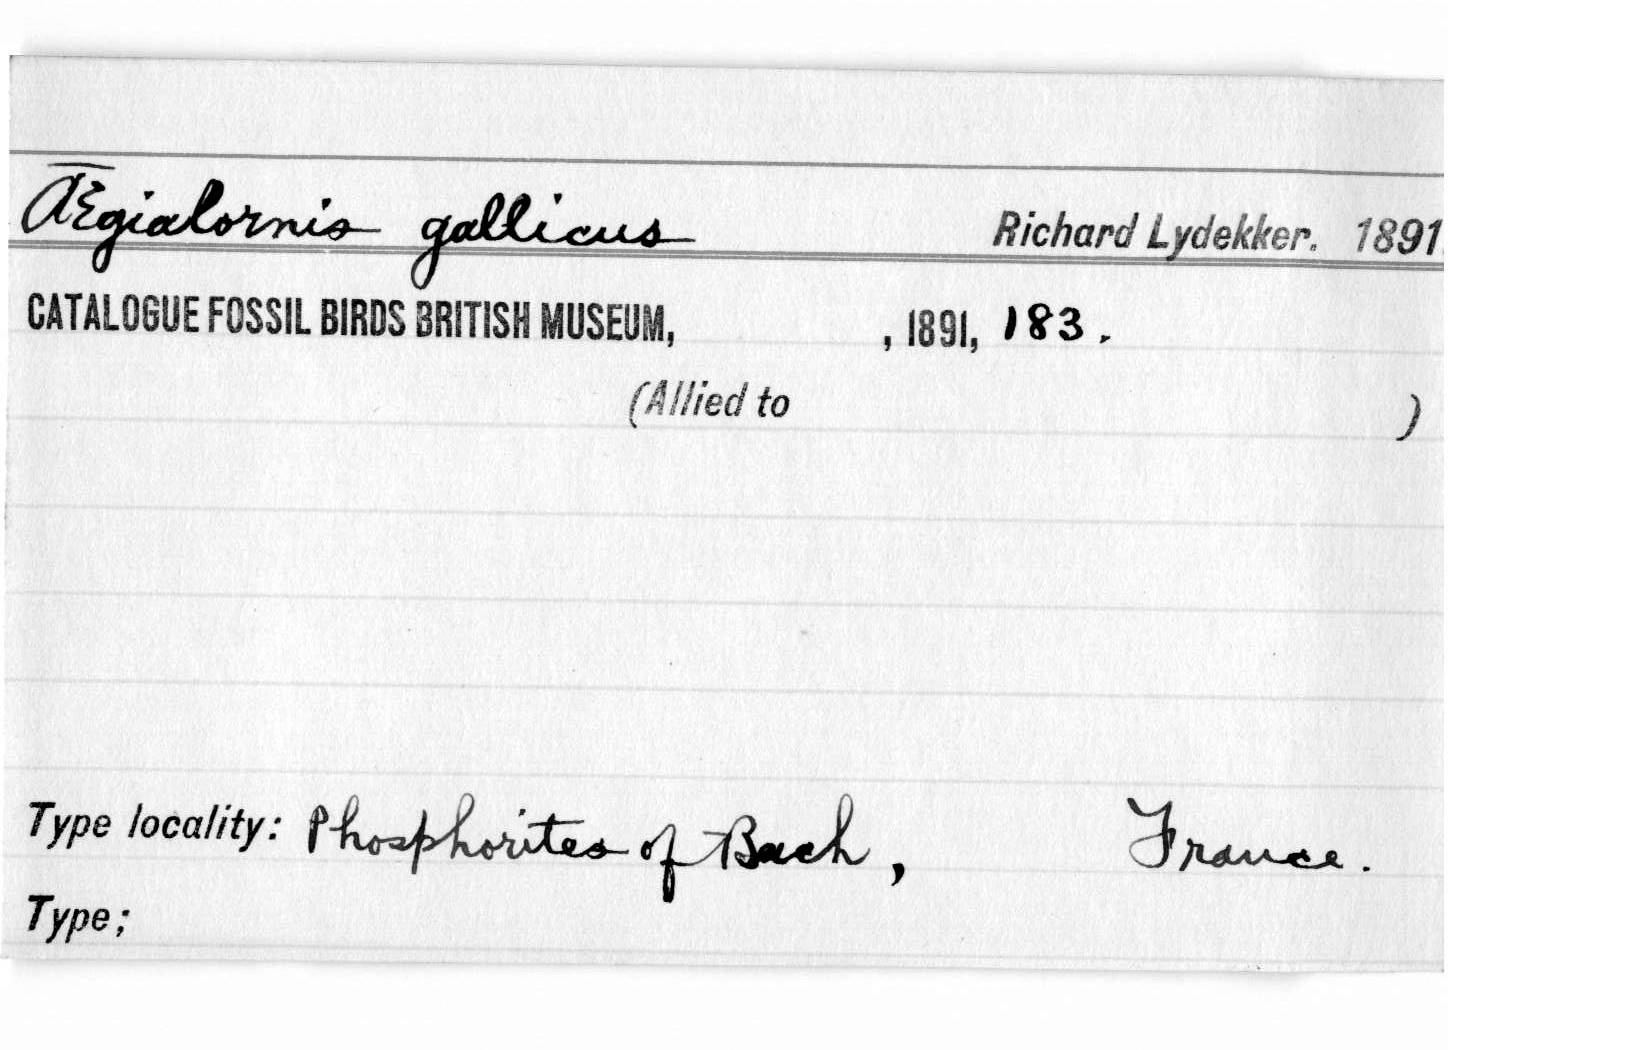 Ægialornis gallicus Richard Lydekker. 1891.
CATALOGUE FOSSIL BIRDS BRITISH MUSEUM, , 1891, 183.
(Allied to )
Type locality: Phosphorites of Bach, France.
Type;